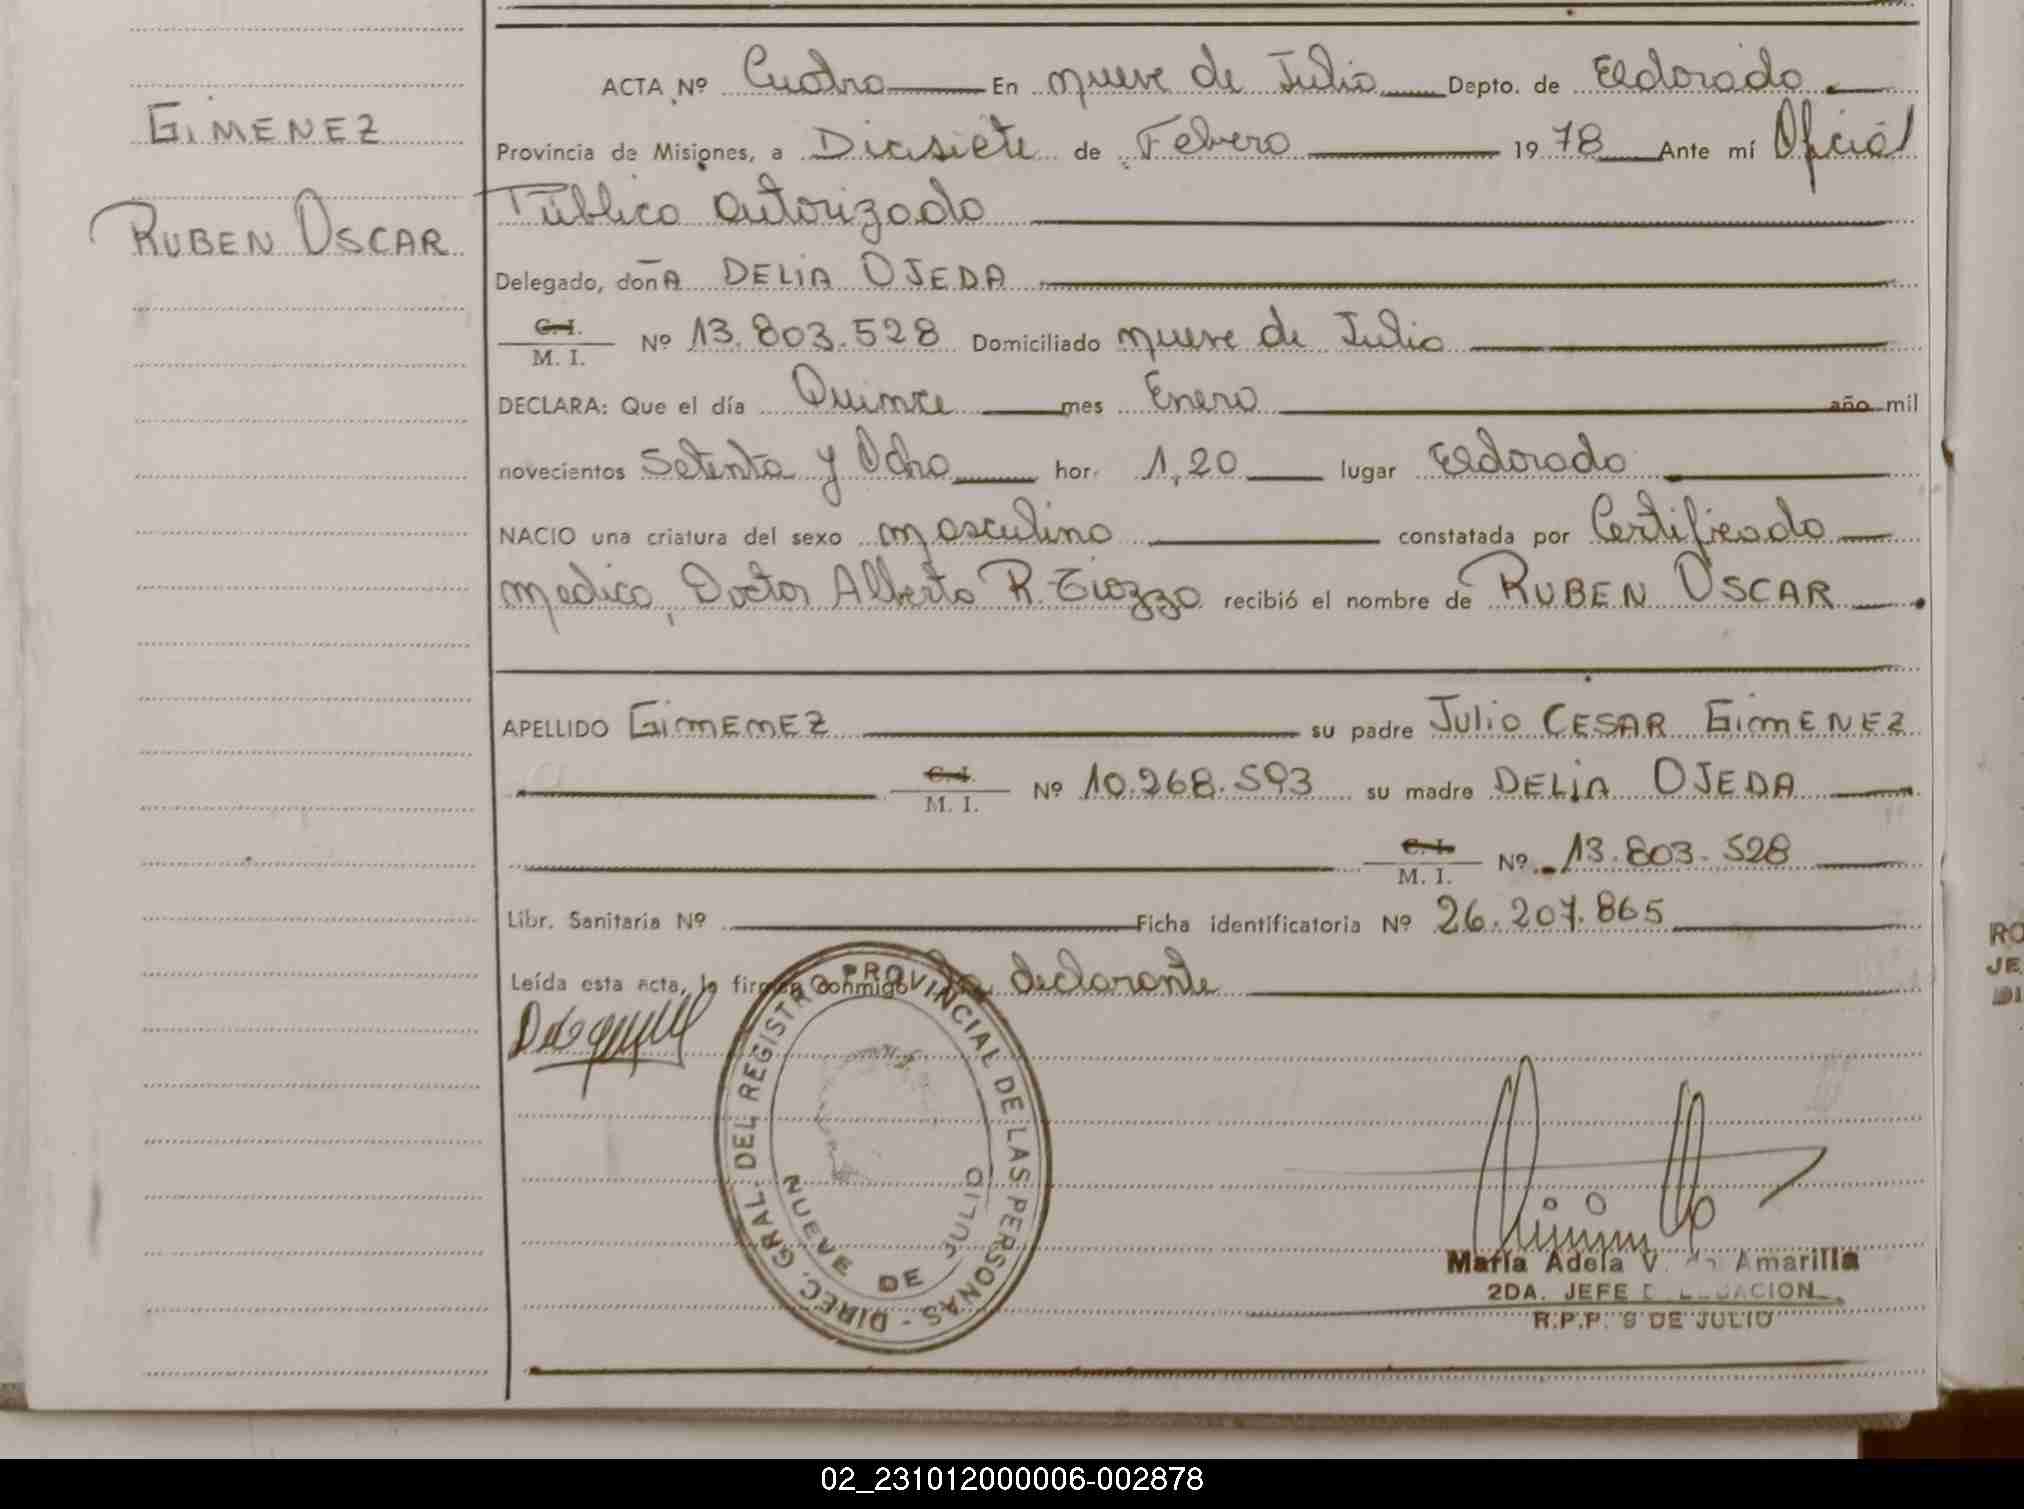 GIMENEZ
RUBEN OSCAR
ACTA Nº Cuatro En nueve de Julio Depto. de Eldorado
Provincia de Misiones, a Diecisiete de Febrero 1978 Ante mí Oficial
Público autorizado
Delegado, doñA DELIA OJEDA
C. I.
M. I. Nº 13.803.528 Domiciliado nueve de Julio
DECLARA: Que el día Quince mes Enero año mil
novecientos Setenta y Ocho hor. 1,20 lugar Eldorado
NACIO una criatura del sexo masculino constatada por Certificado
medico, Doctor Alberto R. recibió el nombre de RUBEN OSCAR
APELLIDO GIMENEZ su padre JULIO CESAR GIMENEZ
C. I.
M. I. Nº 10.268.593 su madre DELIA OJEDA
C. I.
M. I. Nº 13.803.528
Libr. Sanitaria Nº Ficha identificatoria Nº 26.207.865
Leída esta acta, la firman conmigo declarante
DIREC. GRAL. DEL REGISTRO PROVINCIAL DE LAS PERSONAS -
NUEVE DE JULIO
María Adela V. Amarilla
2DA. JEFE
R.P.P. 9 DE JULIO
RO
JE
DI
02_231012000006-002878